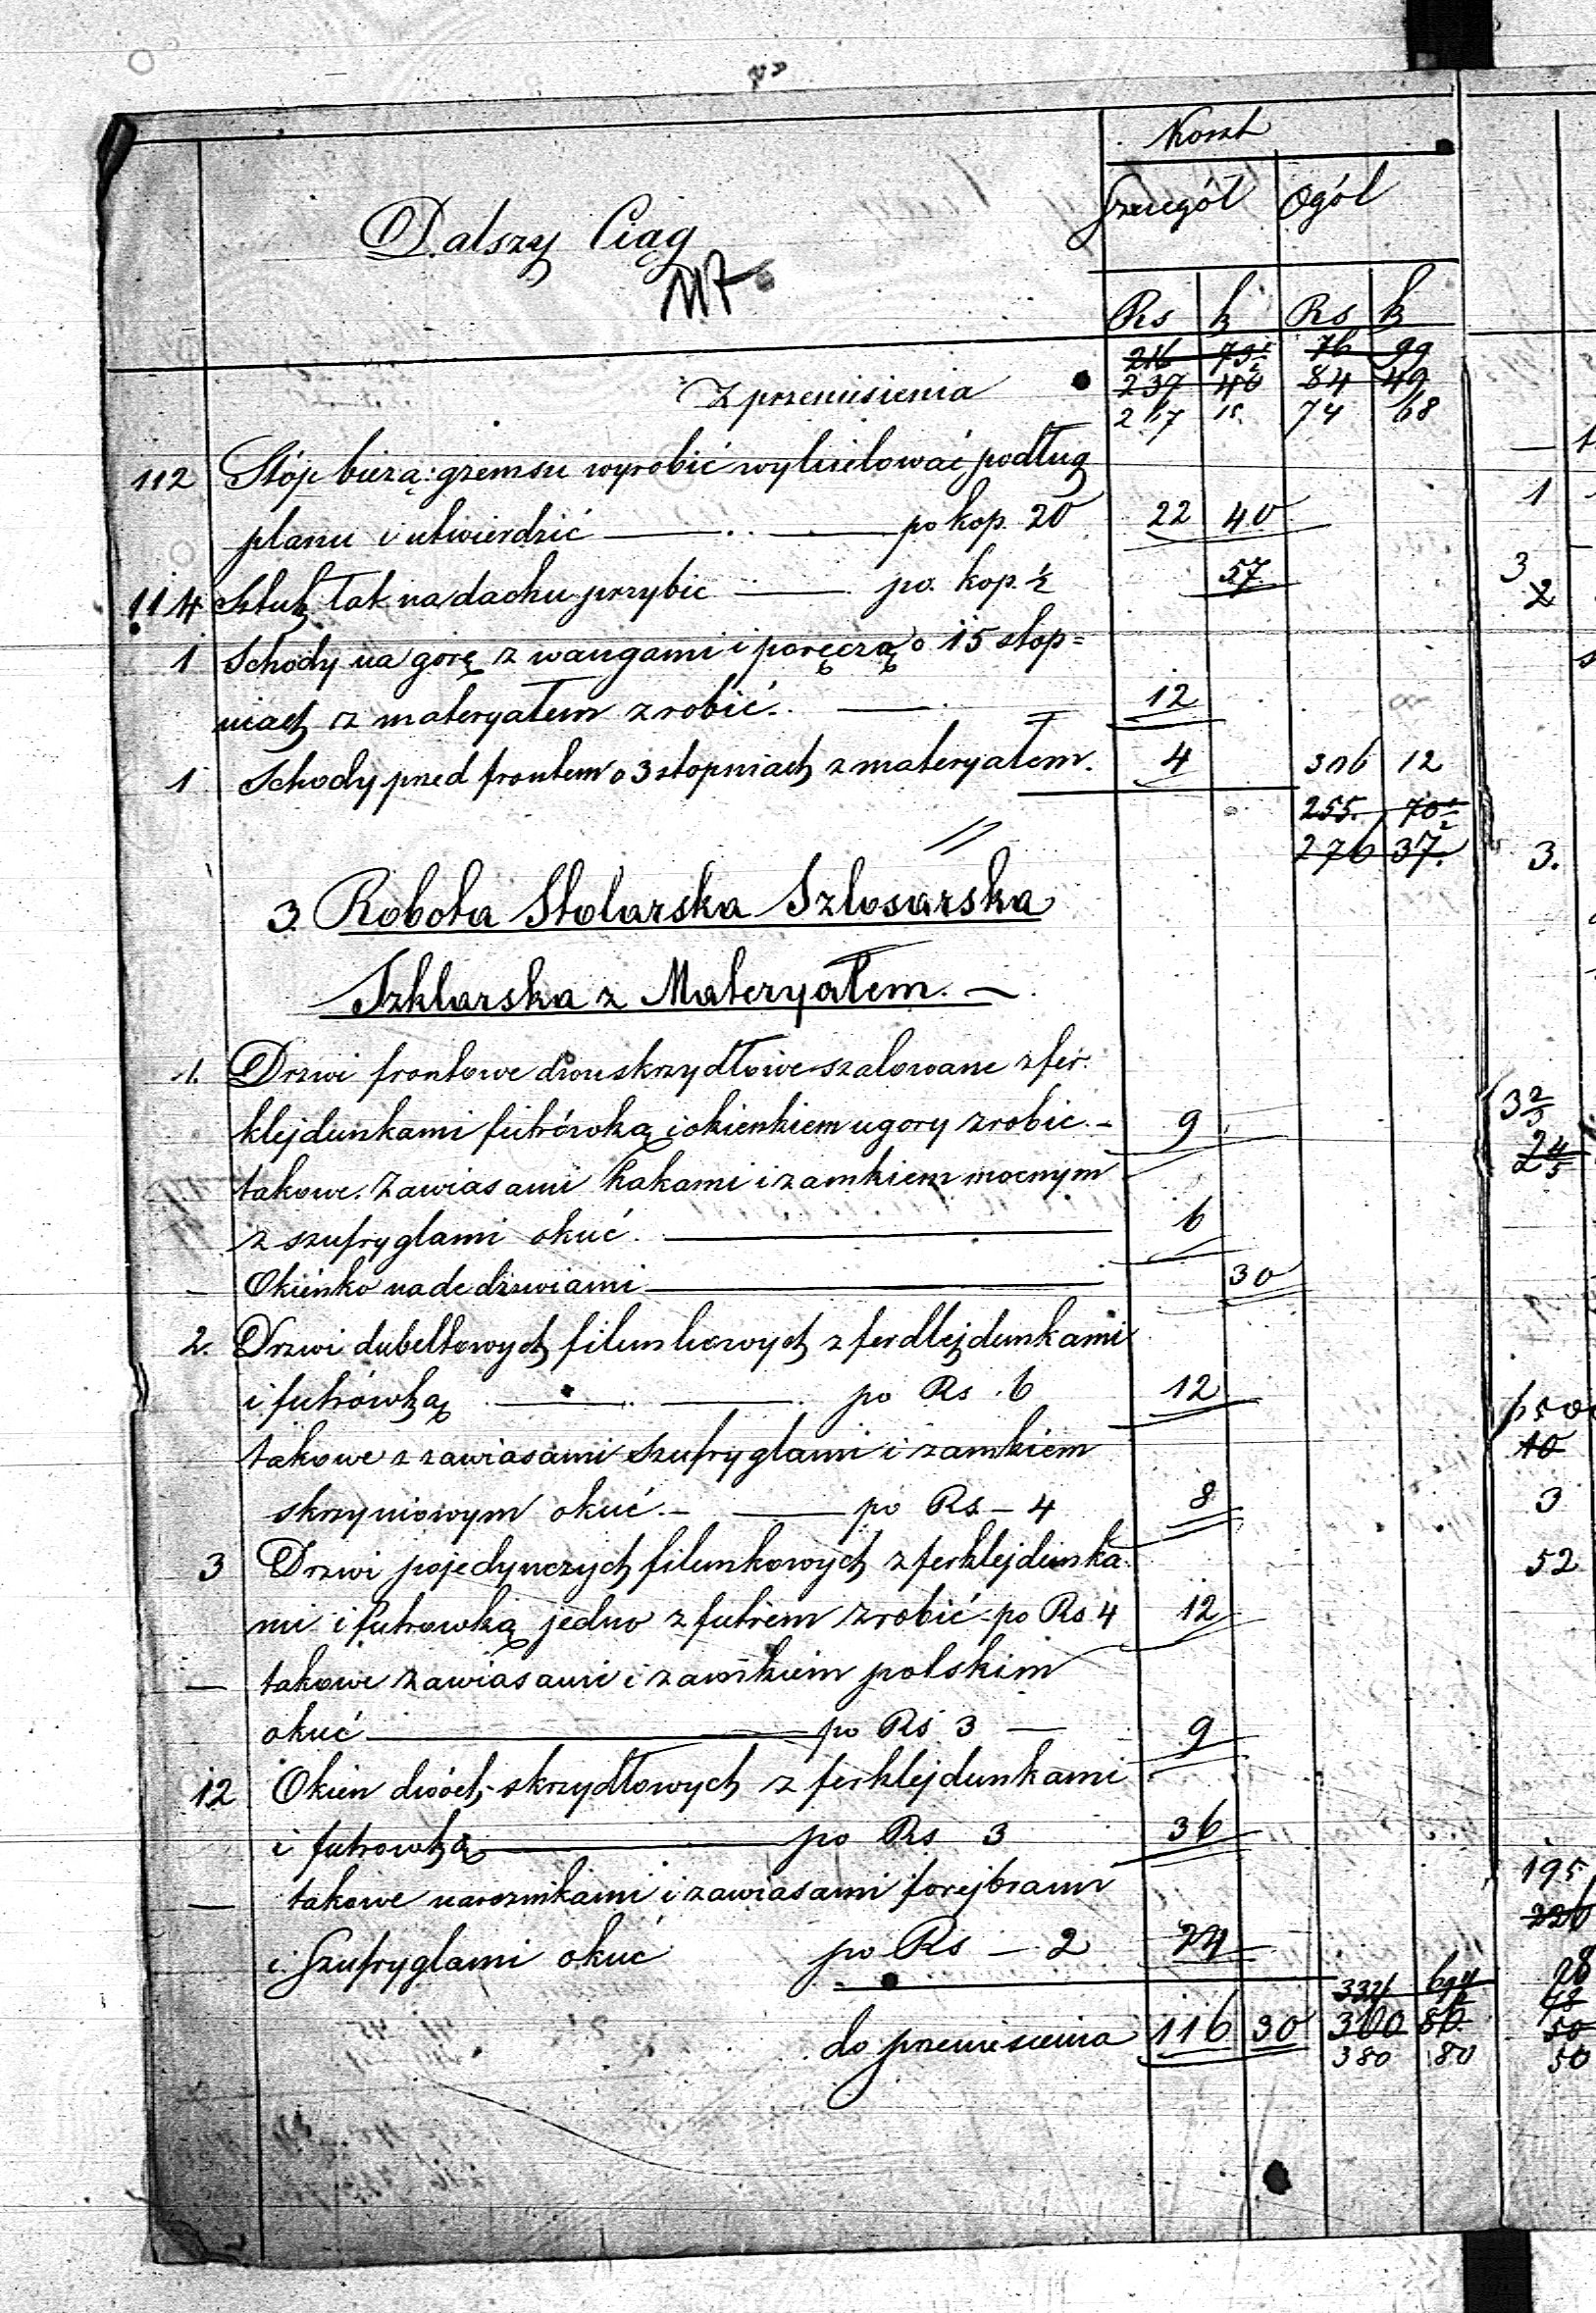 Koszt
Szczegół Ogół
Dalszy Ciąg
Rs k Rs k
216 73½ 76 99
Z przeniesienia 237 40 84 49
267 15. 74 68
112 Stóp bieżą: gzemsu wyrobić wykielować podług
planu i utwierdzić po kop. 20 22 40
114 Sztuk łat na dachu przybic po. kop. ½ 57
1 Schody na gorę z wangami i poręczą o 15 stop=
niach z materyałem zrobić. 12
1 Schody przed frontem o 3 stopniach z materyałem. 4 306 12
255. 70½
276 37.
3. Robota Stolarska Szlosarska
Szklarska z Materyałem.
1. Drzwi frontowe dwuskrzydłowe szalowane z fer.
klejdunkami futrówką i okienkiem ugory zrobic. 9
takowe. Zawiasami hakami i zamkiem mocnym
z szufryglami okuć. 6
— Okieńko nade drzwiami 30
2. Drzwi dubeltowych filunkowych z ferdlejdunkami
i futrówką po Rs. 6 12
takowe z zawiasami Szufryglami i zamkiem
skrzyniowym okuć. po Rs – 4 8
3 Drzwi pojedynczych filunkowych z ferklejdunka.
mi i futrowką jedno z futrem zrobić po Rs. 4 12
— takowe zawiasami i zamkiem polskim
okuć po Rs 3 9
12 Okien dwóch-skrzydłowych z ferklejdunkami
i futrowką po Rs 3 36
— takowe naroznikami i zawiasami forejbrami
i Szufryglami okuć po Rs – 2 24
do przeniesienia 116 30 300 50
380 80
1
3
2
3.
3⅔
2⅘
10
3
52
195
226
28
48
50
50